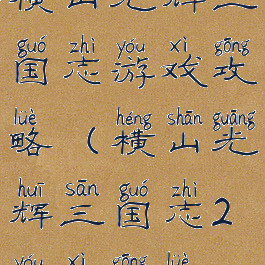 横山光辉三
guó zhì yóu xì gōng
国志游戏攻
lüè héng shān guāng
略（横山光
huī sān guó zhì
辉三国志2
yóu xì gōng lüè